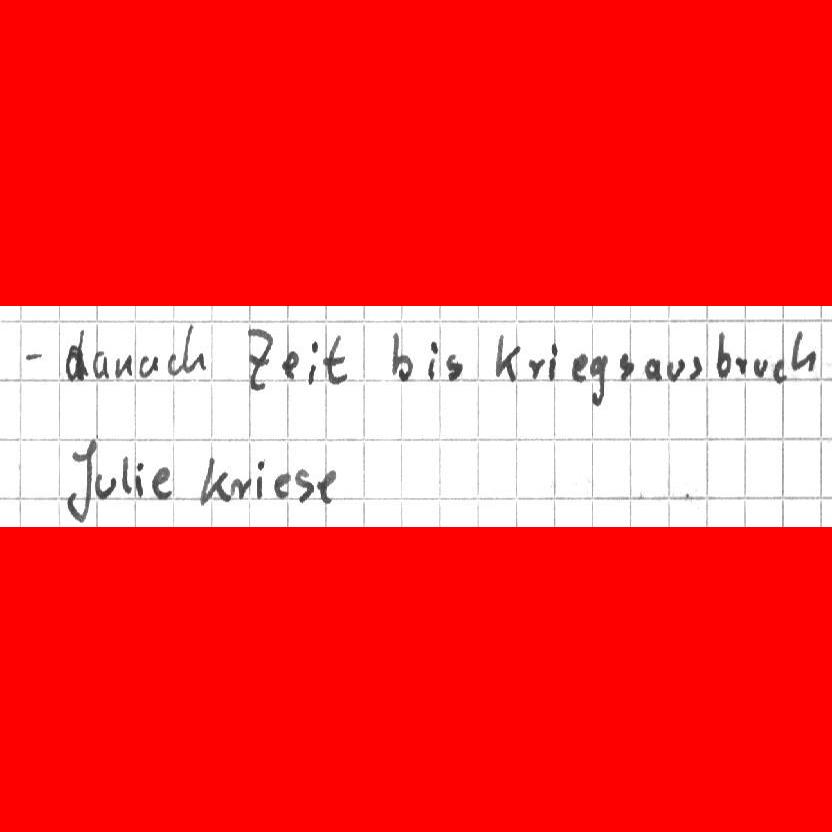 - danach Zeit bis Kriegsausbruch
Julie Kriese